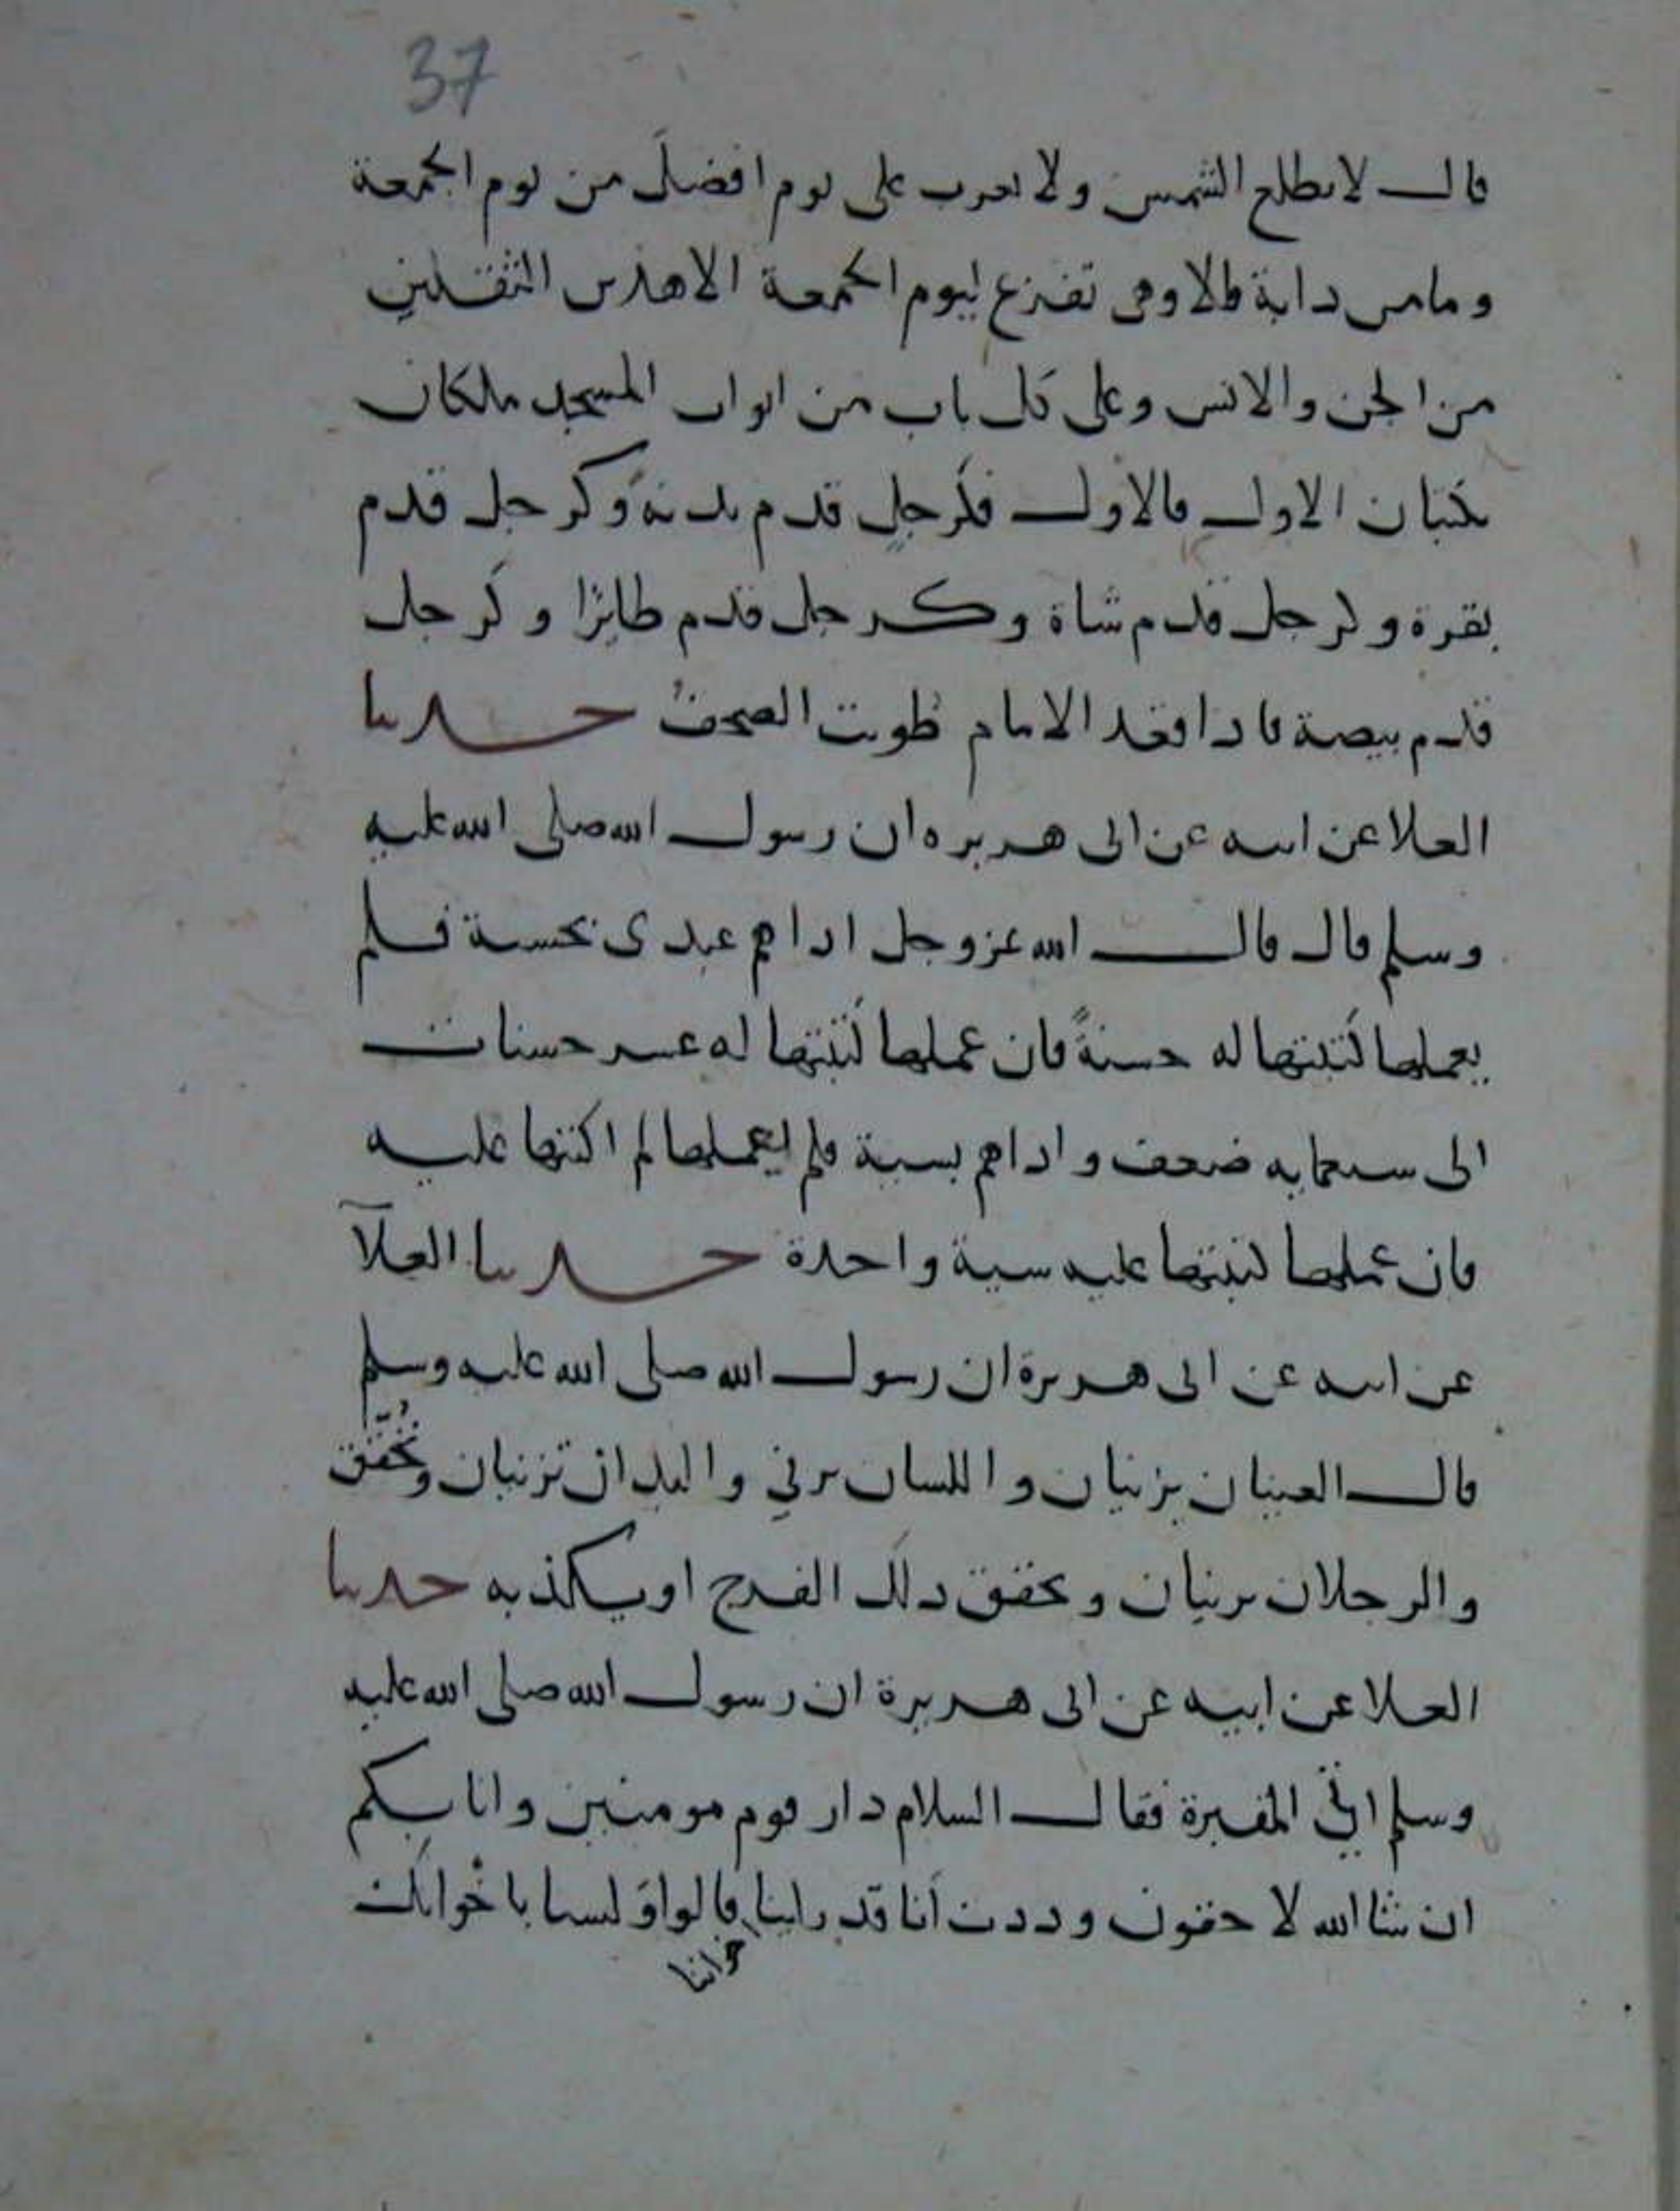 37
قال لا تطلع الشمس ولا تغرب على يوم افضل من يوم الجمعة
وما من دابة الا وهى تفزع ليوم الجمعة الا هذين الثقلين
من الجن والانس وعلى كل باب من ابواب المسجد ملكان
يكتبان الاول فالاول فكرجل قدم بدنة وكرجل قدم
بقرة وكرجل قدم شاة وكرجل قدم طايرا وكرجل
قدم بيضة فاذا قعد الامام طويت الصحف حدثنا
العلا عن ابيه عن ابى هريره ان رسول الله صلى الله عليه
وسلم قال قال الله عز وجل اذا هم عبدى بحسنة فلم
يعملها كتبتها له حسنةً فان عملها كتبتها له عشر حسنات
الى سبعمايه ضعف واذا هم بسية فلم يعملها لم اكتبها عليه
فان عملها كتبتها عليه سية واحدة حدثنا العلآ
عن ابيه عن ابى هريرة ان رسول الله صلى الله عليه وسلم
قال العينان يزنيان واللسان يزني واليدان تزنيان وتُحَقّق
والرجلان يزنيان وتحقق ذلك الفرج او يكذبه حدثنا
العلا عن ابيه عن ابى هريرة ان رسول الله صلى الله عليه
وسلم اتى المقبرة فقال السلام دار قوم مومنين وانا بكم
ان شا الله لاحقون وددت أنا قد راينا قالوا اوَ لسنا باخوانك
اخواننا